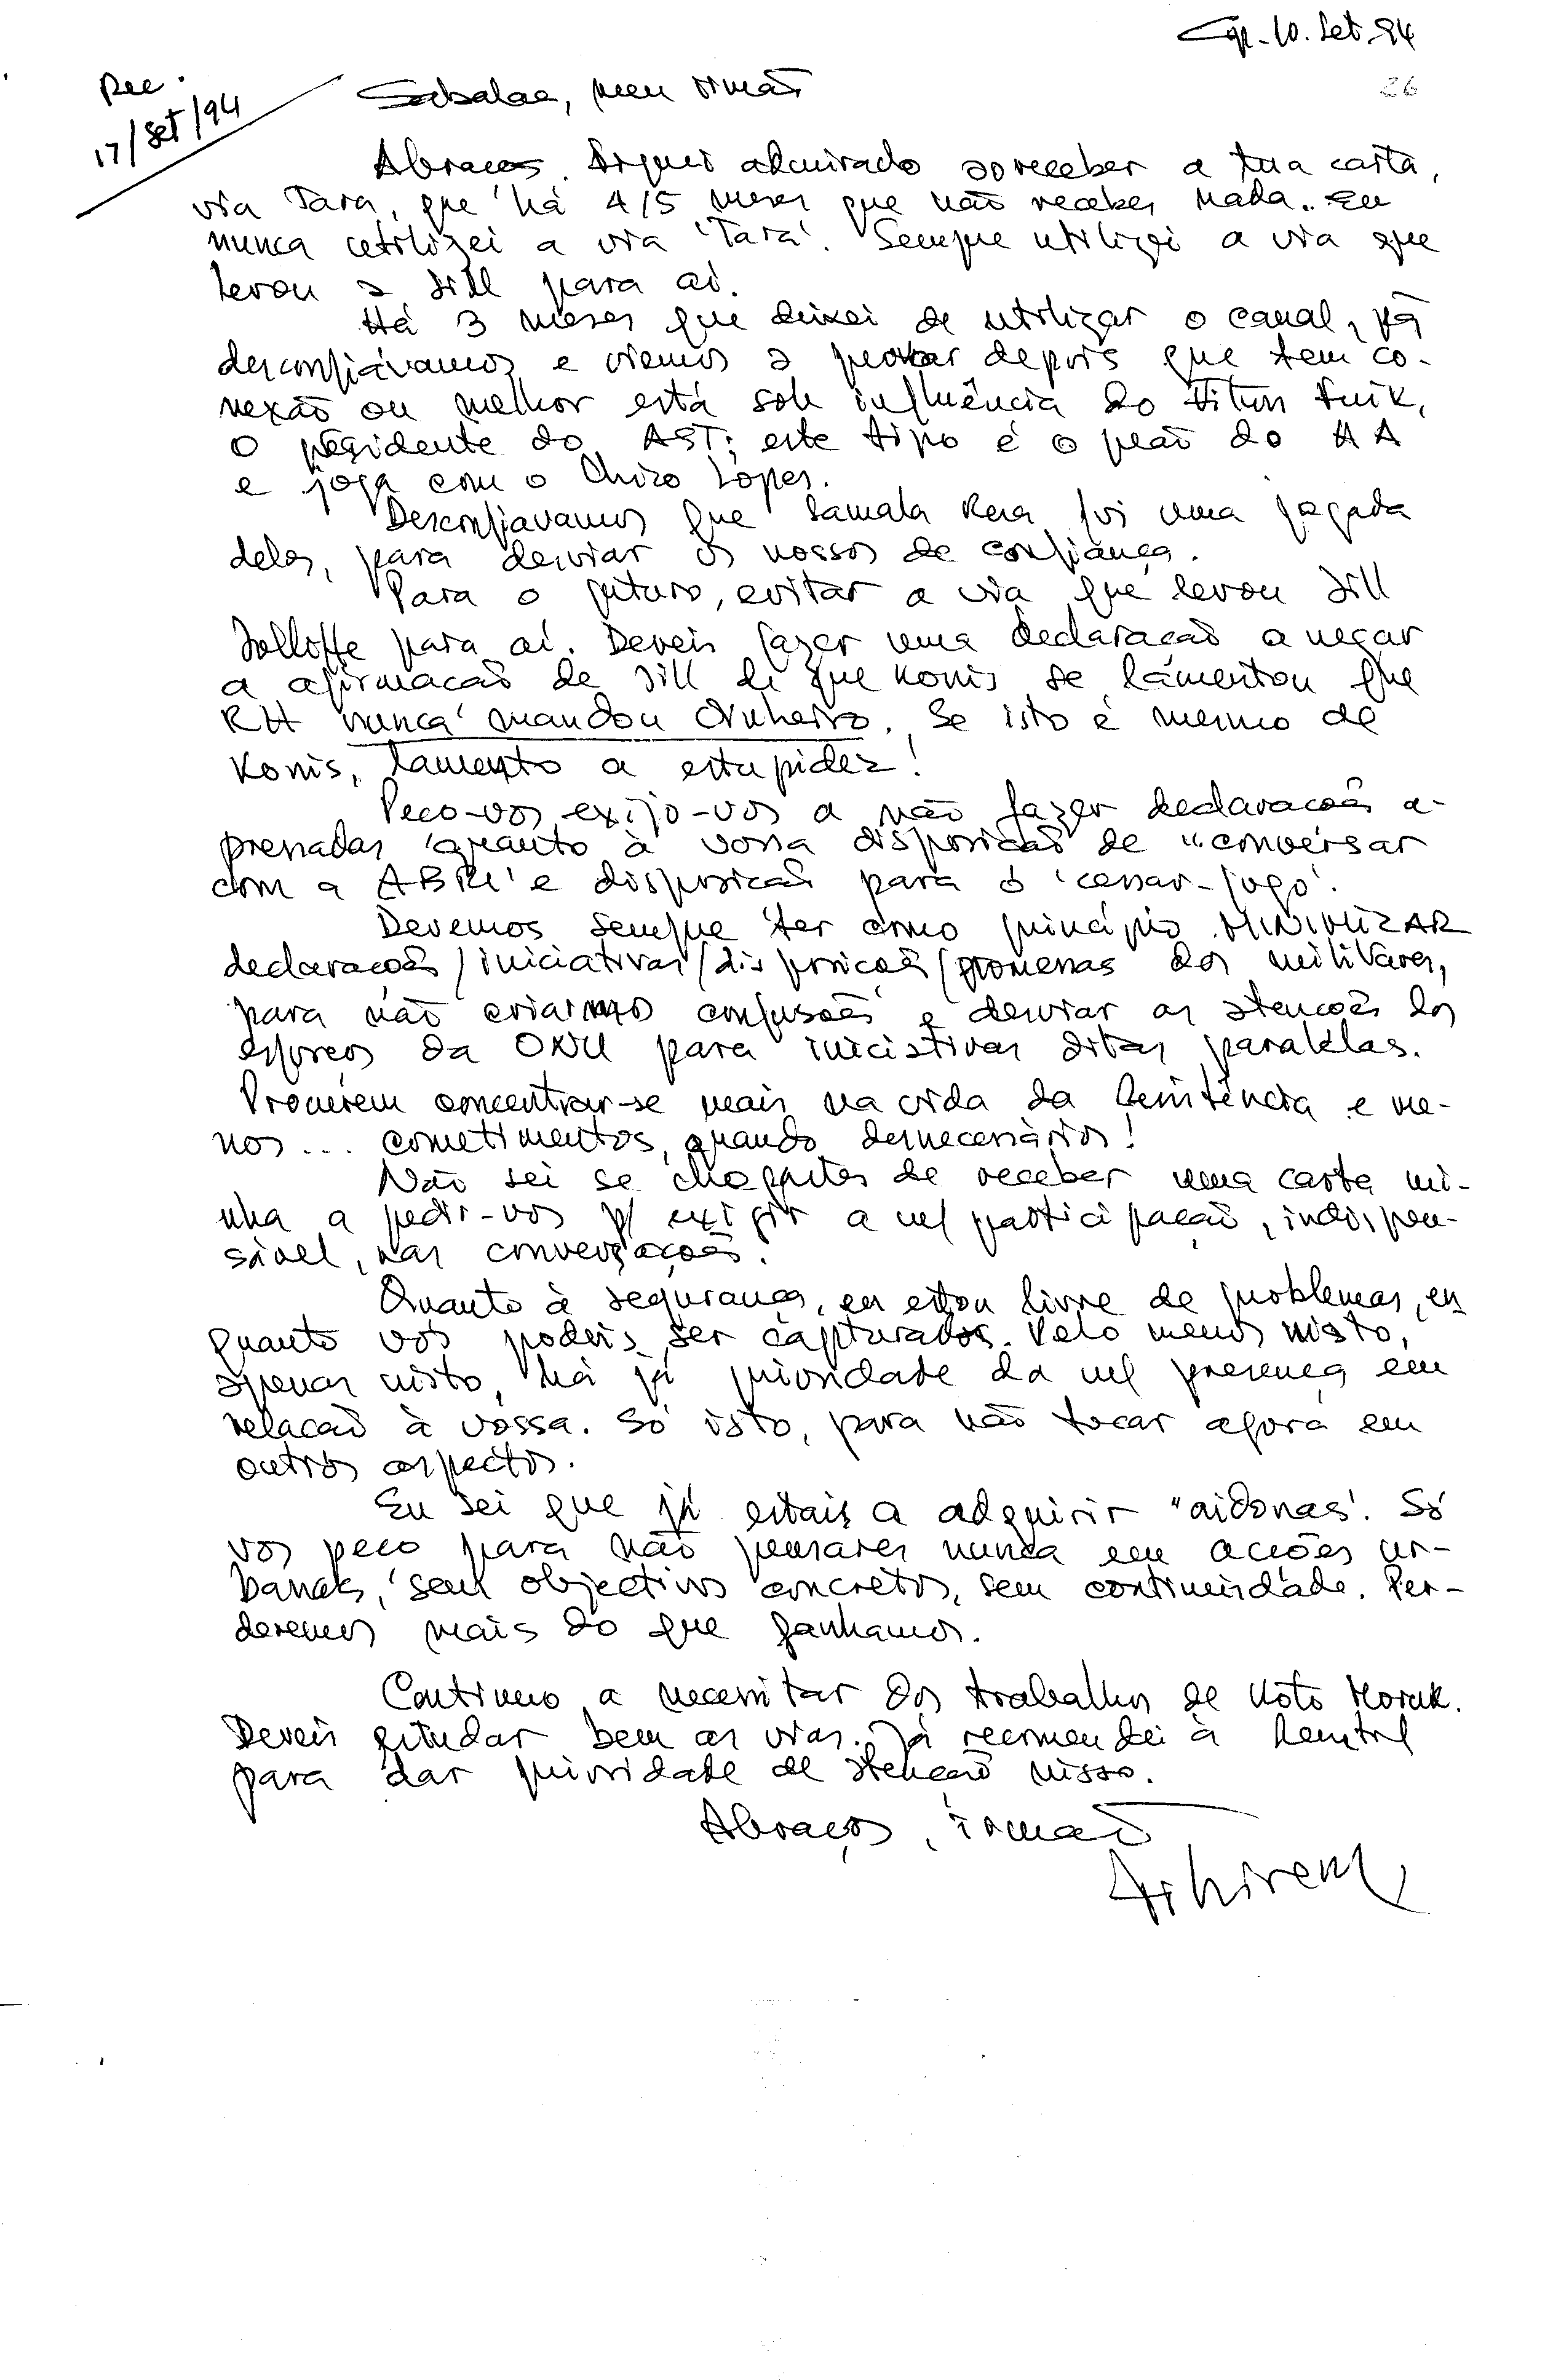 Cip. 10. Set. 94
26
Rec.
17/Set/94
Sabalae, meu irmão
Abraços. Fiquei admirado ao receber a tua carta,
via Tara, que há 4/5 meses que não recebes nada. Eu
nunca utilizei a via 'Tara'. Sempre utilizei a via que
levou a Jill para aí.
Há 3 meses que deixei de utilizar o canal, já
desconfiávamos e viemos a provar depois que tem co-
nexão ou melhor está sob influência do Titun Fuik,
o presidente do AST; este tipo é o peão do AA
e joga com o Chico Lopes.
Desconfiavamos que Samala Rua foi uma jogada
deles, para desviar os nossos de confiança.
Para o futuro, evitar a via que levou Jill
Jolliffe para aí. Deveis fazer uma declaração a negar
a afirmação de Jill de que Konis se lamentou que
RH nunca mandou dinheiro. Se isto é mesmo de
Konis, lamento a estupidez!
Peço-vos, exijo-vos a não fazer declarações a-
pressadas quanto à vossa disposição de "conversar
com a ABRI' e disposição para o 'cessar-fogo'.
Devemos sempre ter como princípio MINIMIZAR
declarações/iniciativas/disposições/promessas dos militares,
para não criarmos confusões e desviar as atenções dos
esforços da ONU para iniciativas ditas paralelas.
Procurem concentrar-se mais na vida da Resistência e me-
nos... cometimentos, quando desnecessários!
Não sei se chegastes de receber uma carta mi-
nha a pedir-vos p/ exigir a m/ participação, indispen-
sável, nas conversações.
Quanto à segurança, eu estou livre de problemas, en
quanto vós podeis ser capturados. Pelo menos nisto,
apenas nisto, há já prioridade da m/ presença em
relação à vossa. Só isto, para não tocar agora em
outros aspectos.
Eu sei que já estais a adquirir "aidonas'. Só
vos peço para não pensares nunca em acções ur-
banas, sem objectivos concretos, sem continuidade. Per-
deremos mais do que ganhamos.
Continuo a necessitar dos trabalhos de Koto Moruk.
Deveis estudar bem as vias. Já recomendei à
para dar prioridade de atenção nisso.
Abraços, irmão